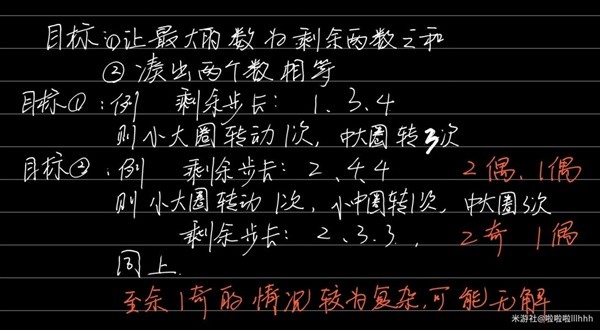 目标:①让最大两数为剩余两数之和
②凑出两个数相等
目标①:例 剩余步长:1、3、4
则小大圈转动1次,中大圈转3次
目标②:例 剩余步长:2、4、4 2偶、1偶
则小大圈转动1次,小中圈转1次,中大圈3次
剩余步长:2、3、3, 2奇 1偶
同上.
至余1奇的情况较为复杂,可能无解
米游社@啦啦啦lllhhh